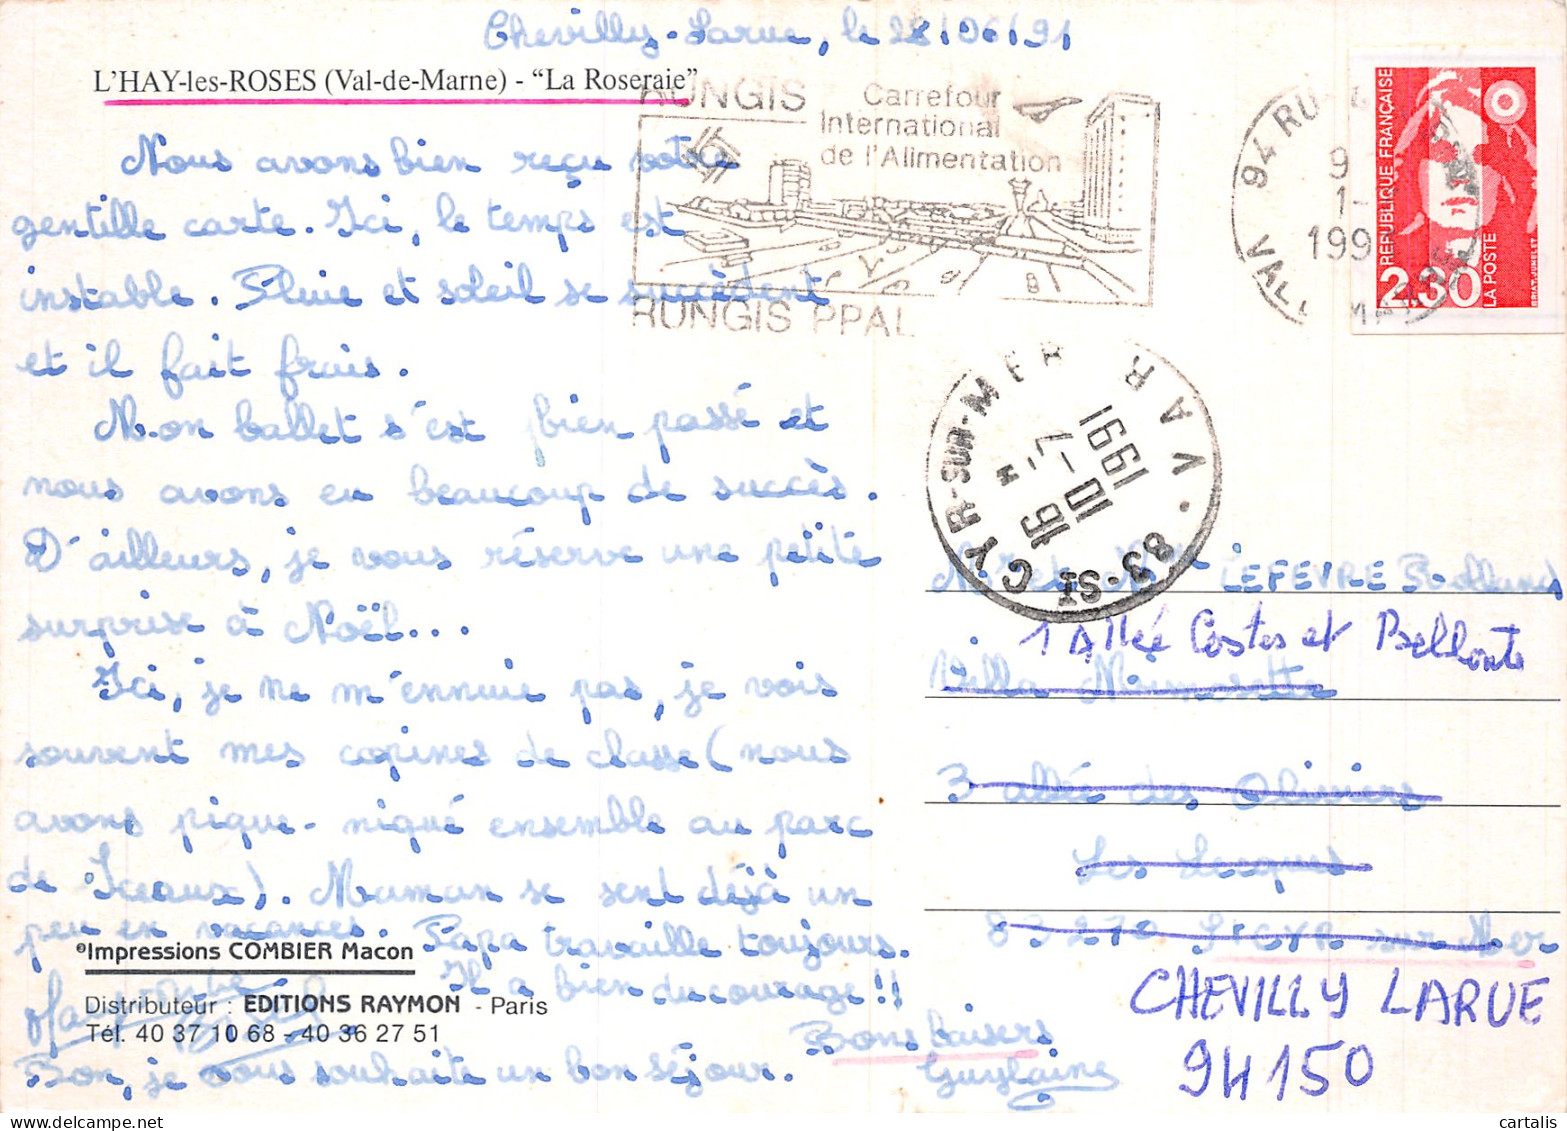 Chevilly-Larue, le 28/06/91
L'HAY-les-ROSES (Val-de-Marne) - "La Roseraie"
Nous avons bien reçu votre
gentille carte. Ici, le temps est
instable. Pluie et soleil se succèdent
et il fait frais.
Mon ballet s'est bien passé et
nous avons eu beaucoup de succès.
D'ailleurs, je vous réserve une petite
surprise à Noël...
Ici, je ne m'ennuie pas, je vois
souvent mes copines de classe (nous
avons pique-niqué ensemble au parc
de Sceaux). Maman se sent déjà un
peu en vacances. Papa travaille toujours.
Il a bien du courage!!
Bon, je vous souhaite un bon séjour.
Bons baisers
Guylaine
©Impressions COMBIER Macon
Distributeur : EDITIONS RAYMON - Paris
Tél. 40 37 10 68 - 40 36 27 51
RUNGIS Carrefour
International
de l'Alimentation
RUNGIS PPAL
94 RU
9
1-
199
VAL MARNE
RÉPUBLIQUE FRANÇAISE
2,30
LA POSTE
BRIAT-JUMELET
83-ST CYR-SUR-MER VAR
16 H
10-7
1991
LEFEVRE Rolland
1 Allée Costes et Bellonte
Villa Mimosette
3 allée des Oliviers
Les Lecques
83270 St CYR sur Mer
CHEVILLY LARUE
94150
cartalis